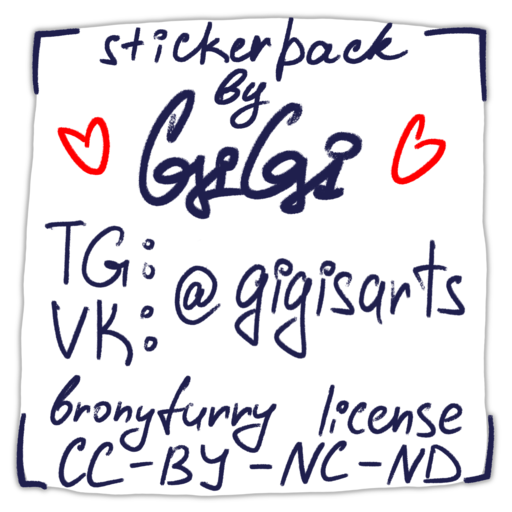 stickerpack
by
GiGi
TG:
VK:
@gigisarts
bronyfurry license
CC-BY-NC-ND